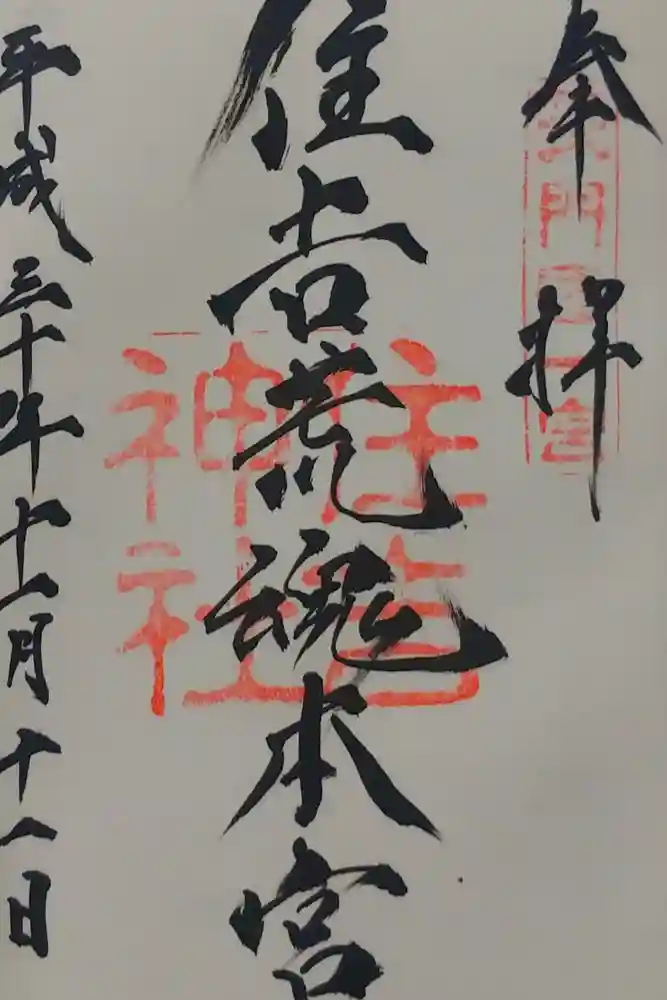 奉拝
長門國一宮
住吉荒魂本宮
住吉
神社
平成三十年十一月十一日